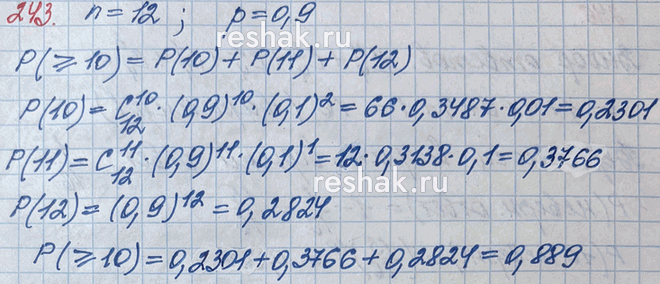 243. n=12; p=0,9
reshak.ru
P(⩾10)=P(10)+P(11)+P(12)
P(10)=C₁₂¹⁰·(0,9)¹⁰·(0,1)²=66·0,3487·0,01=0,2301
P(11)=C₁₂¹¹·(0,9)¹¹·(0,1)¹=12·0,3138·0,1=0,3766
reshak.ru
P(12)=(0,9)¹²=0,2824
P(⩾10)=0,2301+0,3766+0,2824=0,889